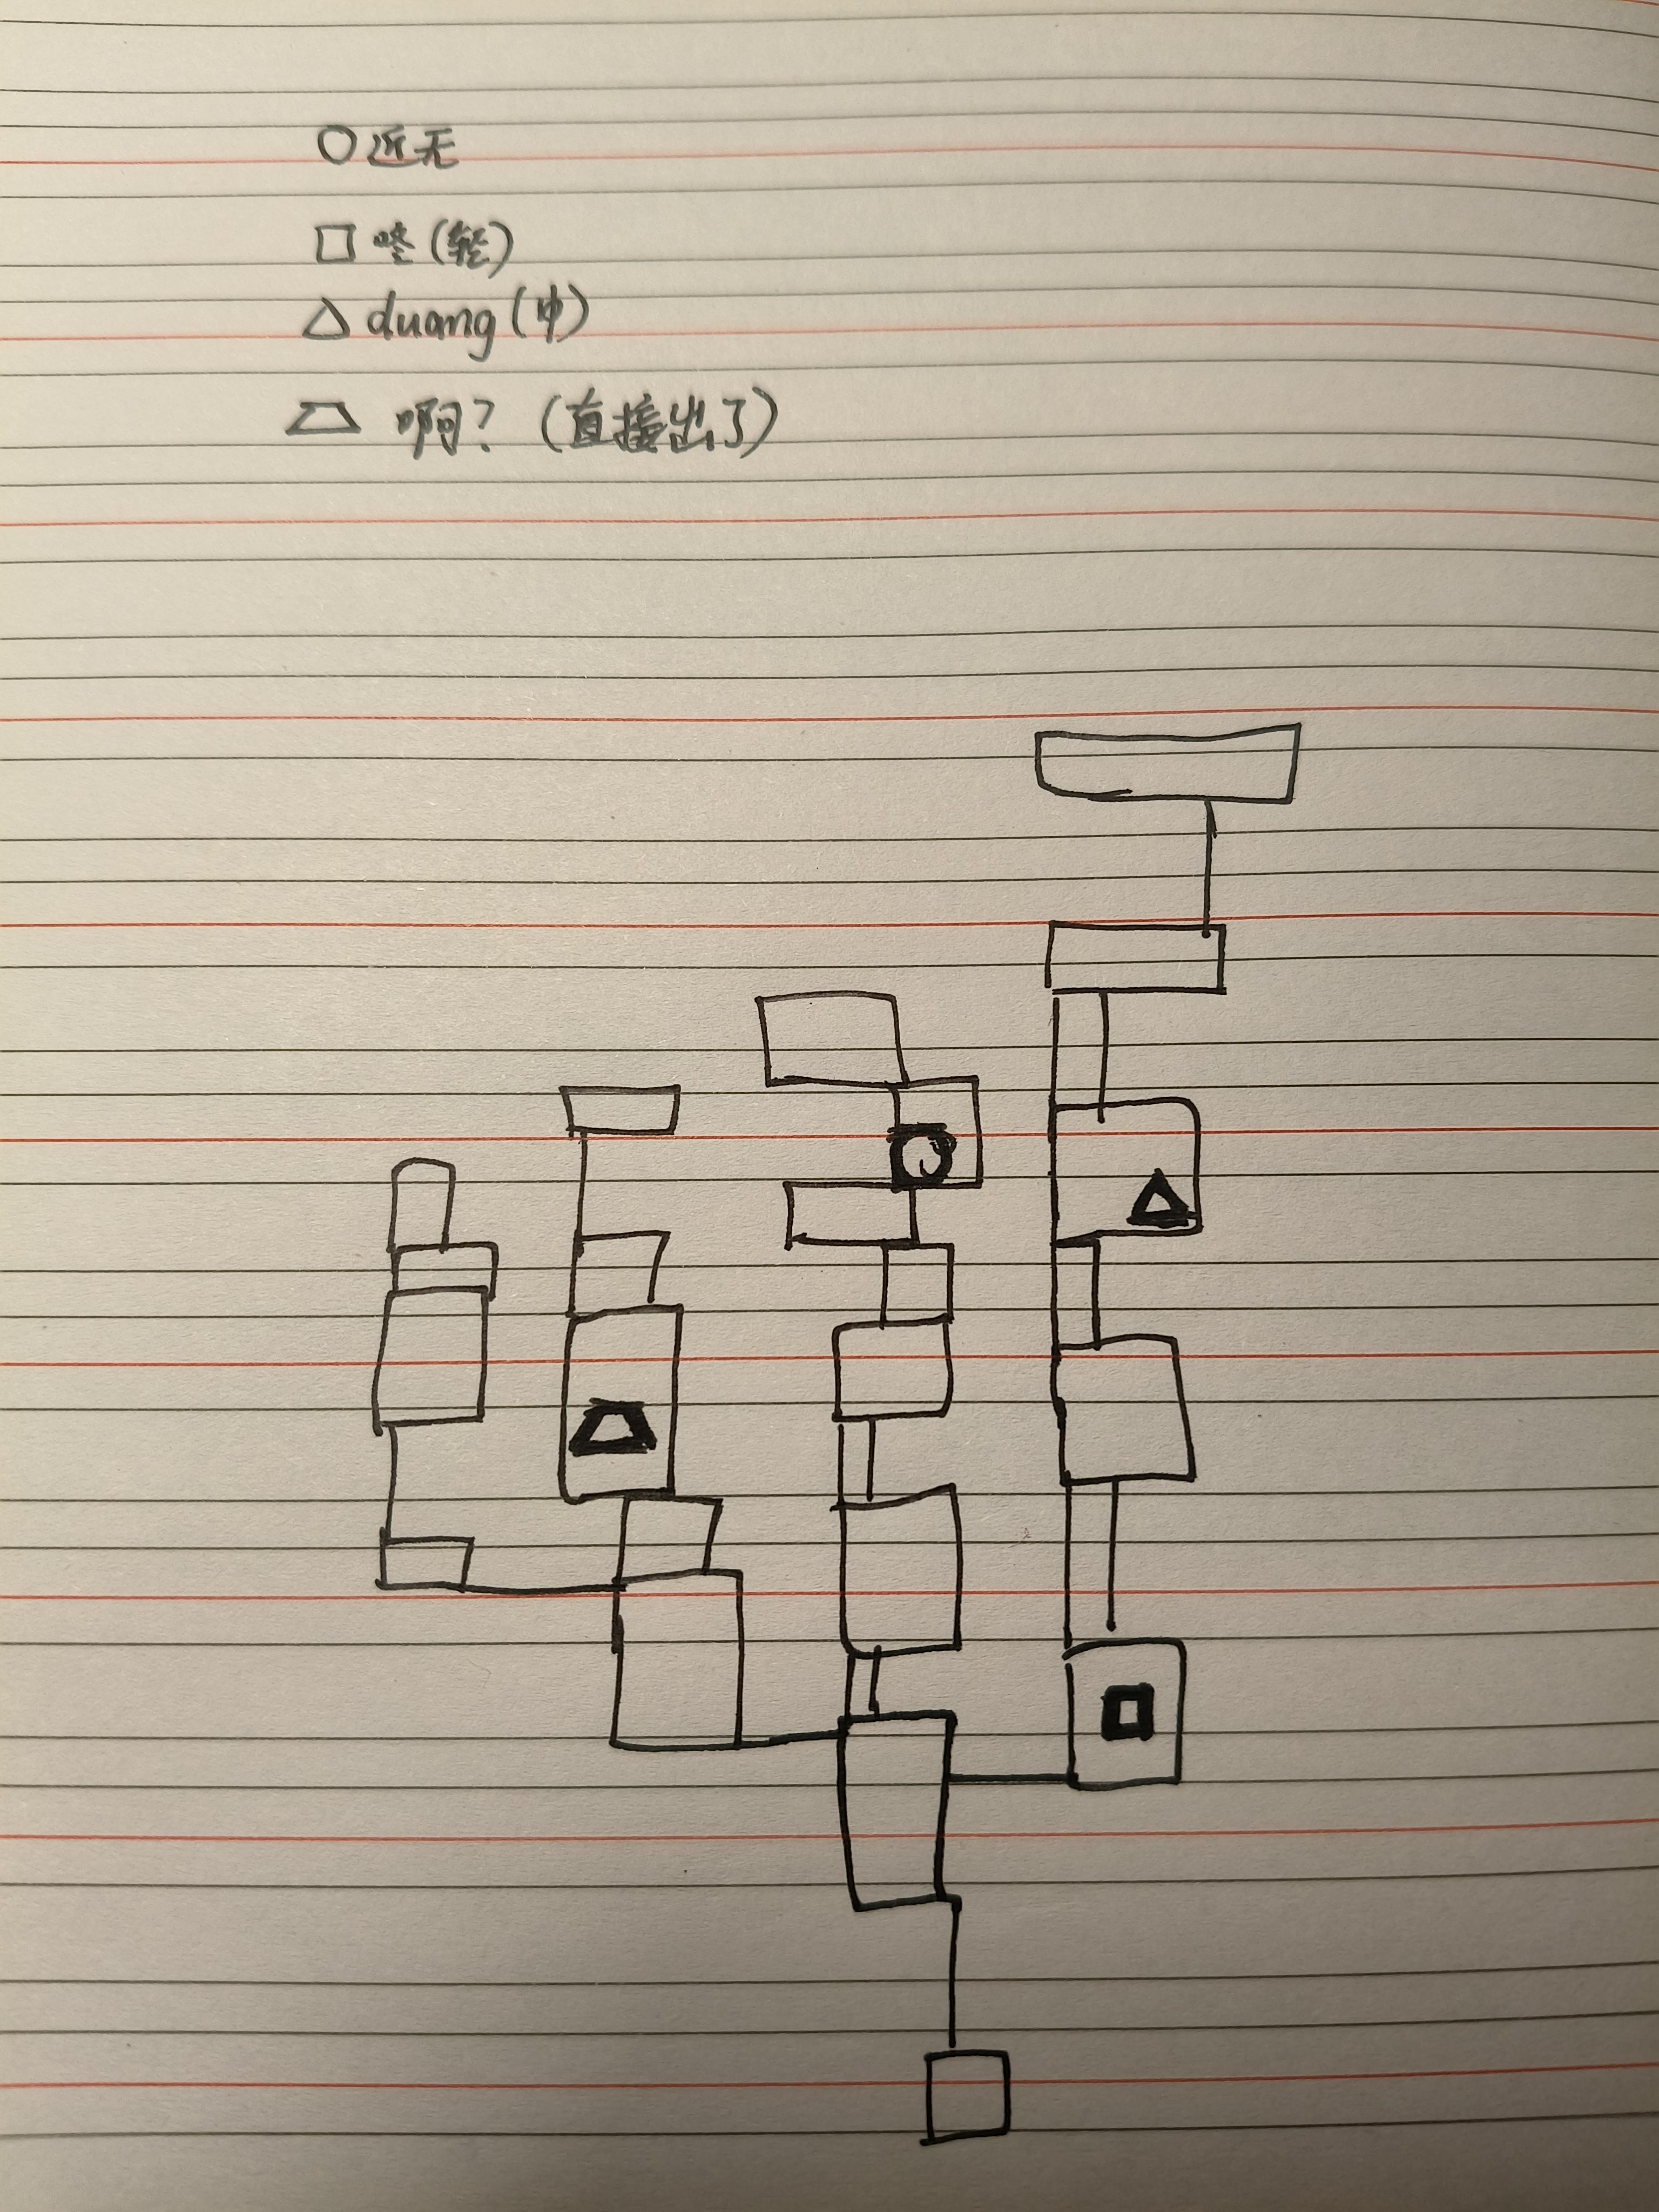 ○近无
□咚(轻)
△duang(中)
啊?(直接出了)